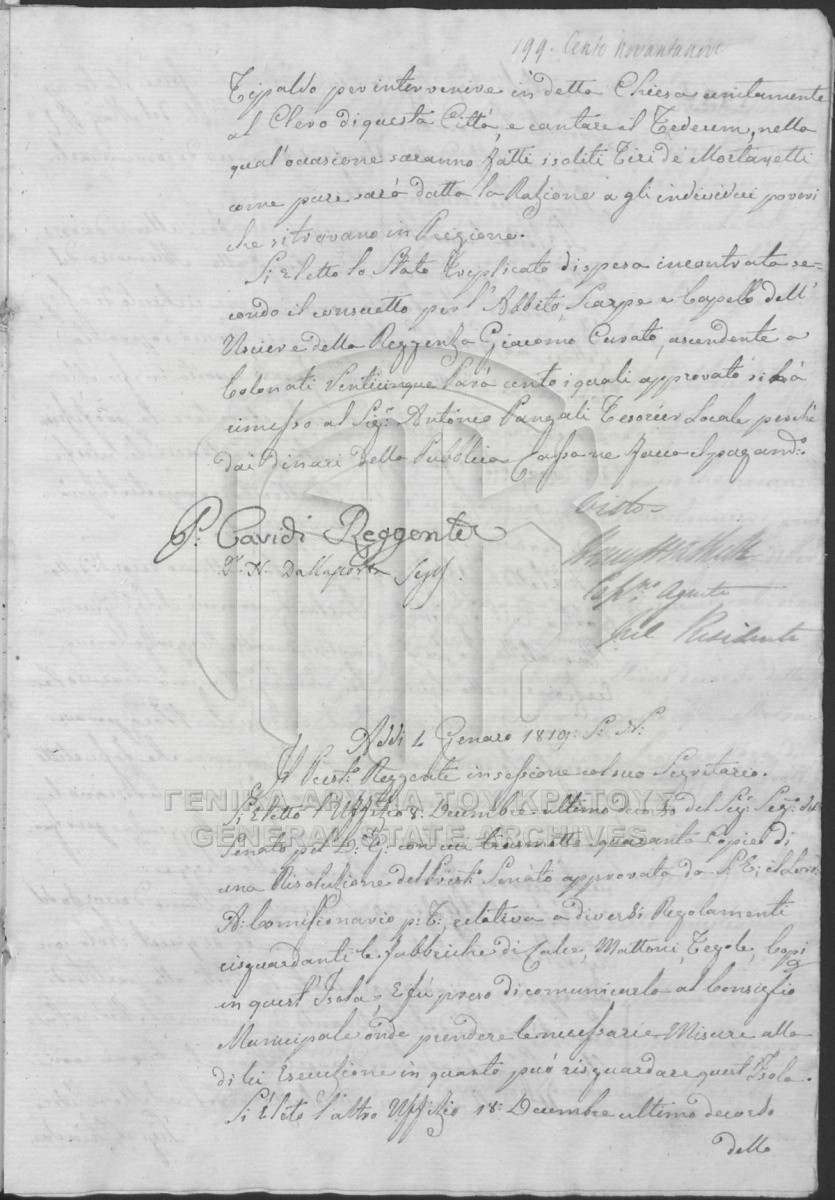 199. Cento Novantanove
Tipaldo per intervenire in detta Chiesa unitamente
al Clero di questa Città, e cantare il Tedeum, nella
qual'occasione saranno fatti i soliti Tiri de Mortaretti
come pure sarà datta la Razione a gli individui poveri
che si trovano in Preggione.
Si è letto lo Stato Triplicato di spesa incontrata se-
condo il consueto per l'Abbito, Scarpe e Capello dell'
Usciere della Reggenza Giacomo Curato, ascendente a
Colonati Venticinque Parà cento i quali approvato si hà
rimesso al Sigr. Antonio Pangali Tesorier Locale perchè
dai Dinari della Pubblica Cassa ne facca il pagamto.
P. Cavidi Reggente
Dr. N. Dallaporta Segr.
Visto
Capno Agente
del Residente
Addi 4 Genaro 1819. S. N.
Il Prest. Reggente in sessione col suo Segretario.
Si è letto l'Uffizio 8. Decembre ultimo scorso del Sigr. Segr. del
Senato per D. G. con cui trasmette quaranta Copie di
una Risoluzione del Prest. Senato approvata da S. E. il Lord
A. Comissionario p. T., relativa a diversi Regolamenti
risguardanti le fabbriche di Calce, Mattoni, Tegole, Copi
in quest'Isola, E fù preso di comunicarlo al Consiglio
Municipale onde prendere le necessarie Misure alla
di lei Esecuzione in quanto può risguardare quest'Isola.
Si è letto l'altro Uffizio 18. Decembre ultimo decorso
dello
ΓΕΝΙΚΑ ΑΡΧΕΙΑ ΤΟΥ ΚΡΑΤΟΥΣ
GENERAL STATE ARCHIVES